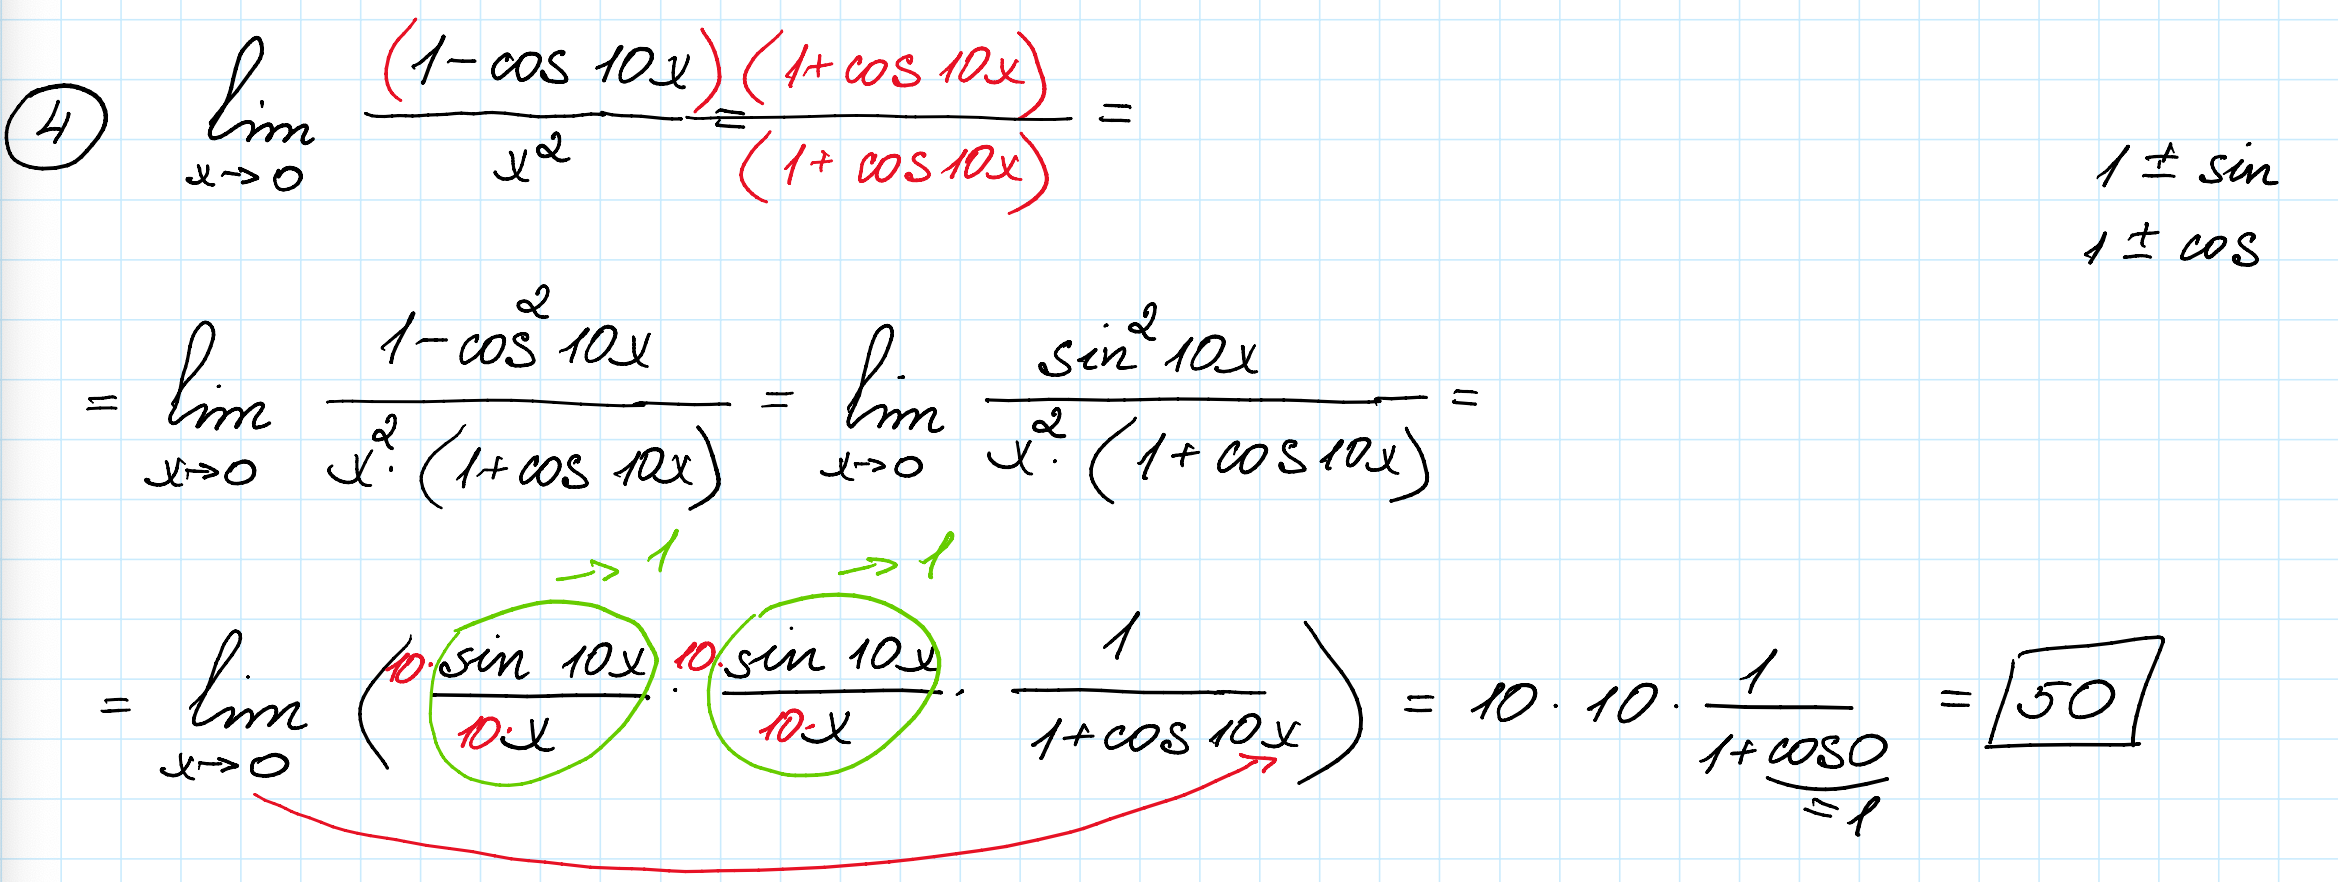 ④ lim x→0 (1 - cos 10x)/x² = (1 + cos 10x)/(1 + cos 10x) =
1 ± sin
1 ± cos
= lim x→0 (1 - cos² 10x)/(x² · (1 + cos 10x)) = lim x→0 (sin² 10x)/(x² · (1 + cos 10x)) =
→ 1 → 1
= lim x→0 (10 · (sin 10x)/(10 · x) · 10 · (sin 10x)/(10 · x) · 1/(1 + cos 10x)) = 10 · 10 · 1/(1 + cos 0) = 50
= 1